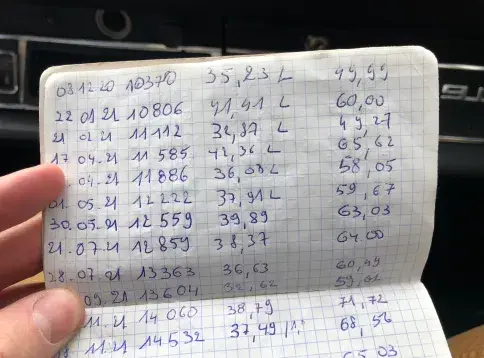 03.12.20 10370 35,23 L 49,99
22 01 21 10806 41,41 L 60,00
21 02 21 11112 32,87 L 49,27
17 04.21 11585 42,36 L 65,62
04.21 11886 36,08 L 58,05
01.05.21 12222 37,91 L 59,67
30.05.21 12559 39,89 63,03
21.07.21 12859 38,37 64.00
28.07.21 13363 36,63 60,49
09.21 13604
11.21 14060 38,79 71,72
11.21 14532 37,49 68,56
65,03